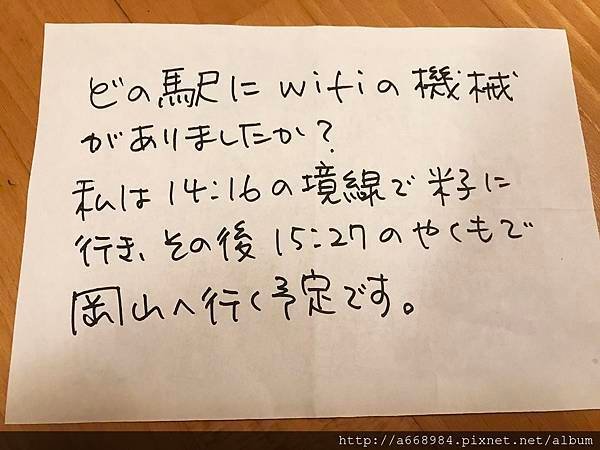 どの駅にwifiの機械
がありましたか?
私は14:16の境線で米子に
行き、その後15:27のやくもで
岡山へ行く予定です。
http://a668984.pixnet.net/album